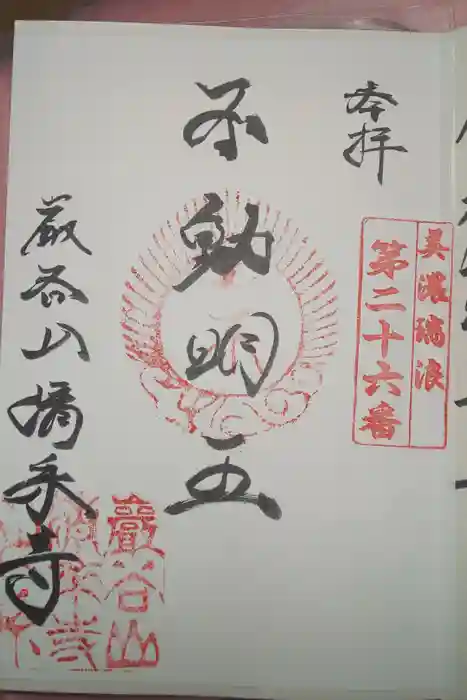 奉拝
美濃瑞浪
第二十六番
不動明王
厳谷山 寺
巖谷山